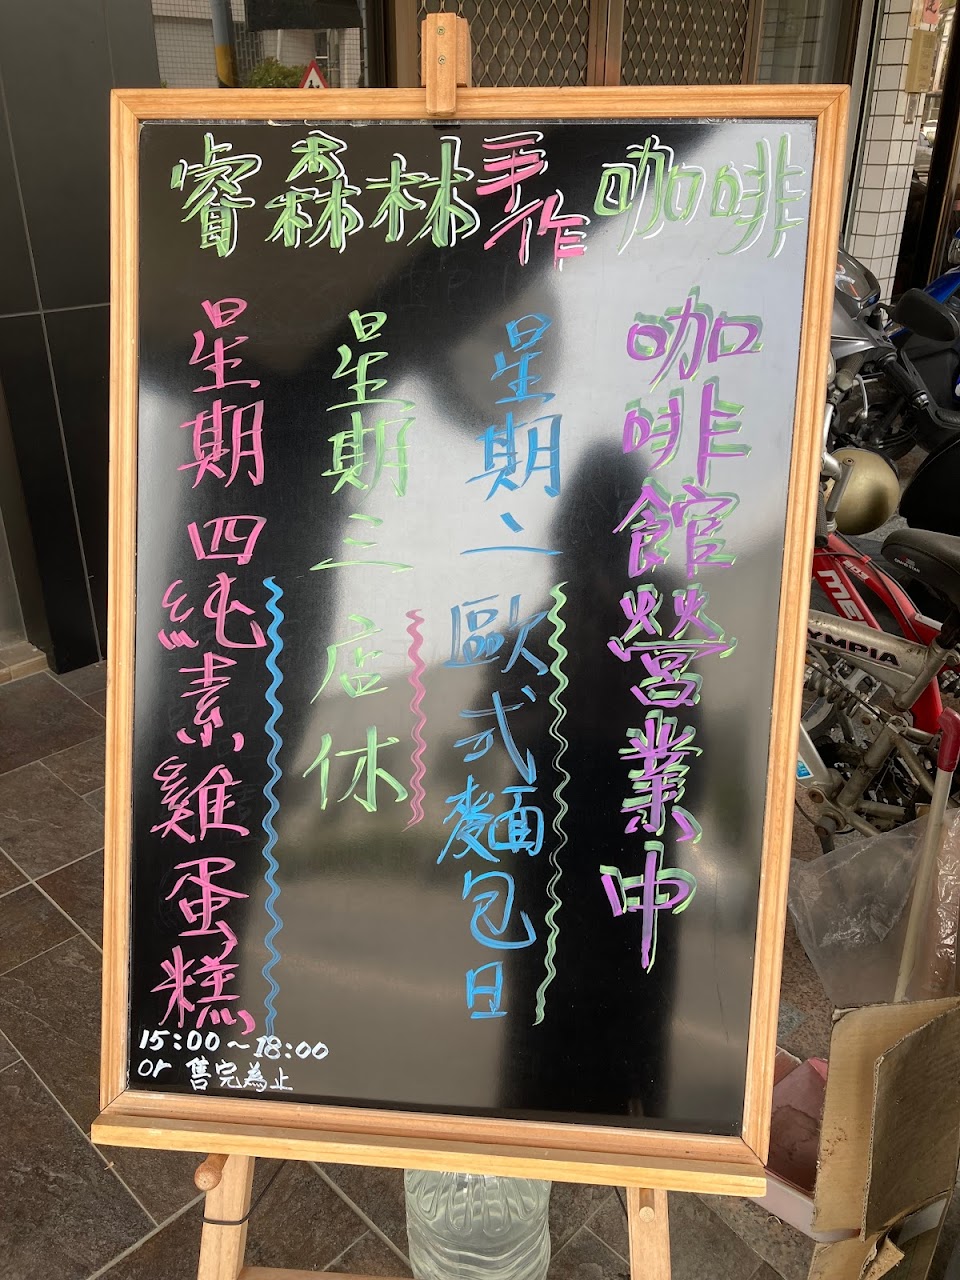 睿森林手作咖啡
咖啡館營業中
星期二歐式麵包日
星期三店休
星期四純素雞蛋糕
15:00~18:00
or 售完為止
OLYMPIA